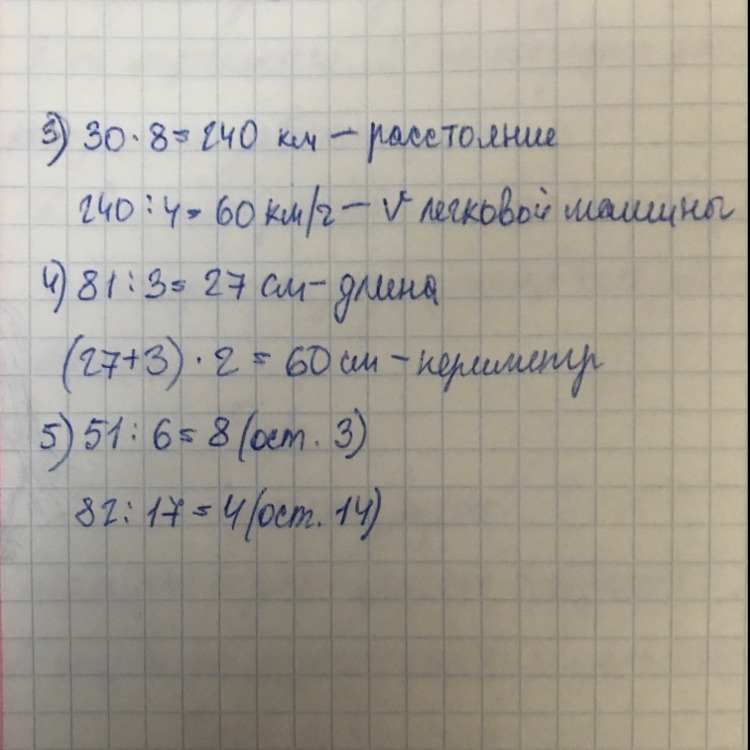 3) 30 · 8 = 240 км – расстояние
240 : 4 = 60 км/ч – V легковой машины
4) 81 : 3 = 27 см – длина
(27+3) · 2 = 60 см – периметр
5) 51 : 6 = 8 (ост. 3)
82 : 17 = 4 (ост. 14)